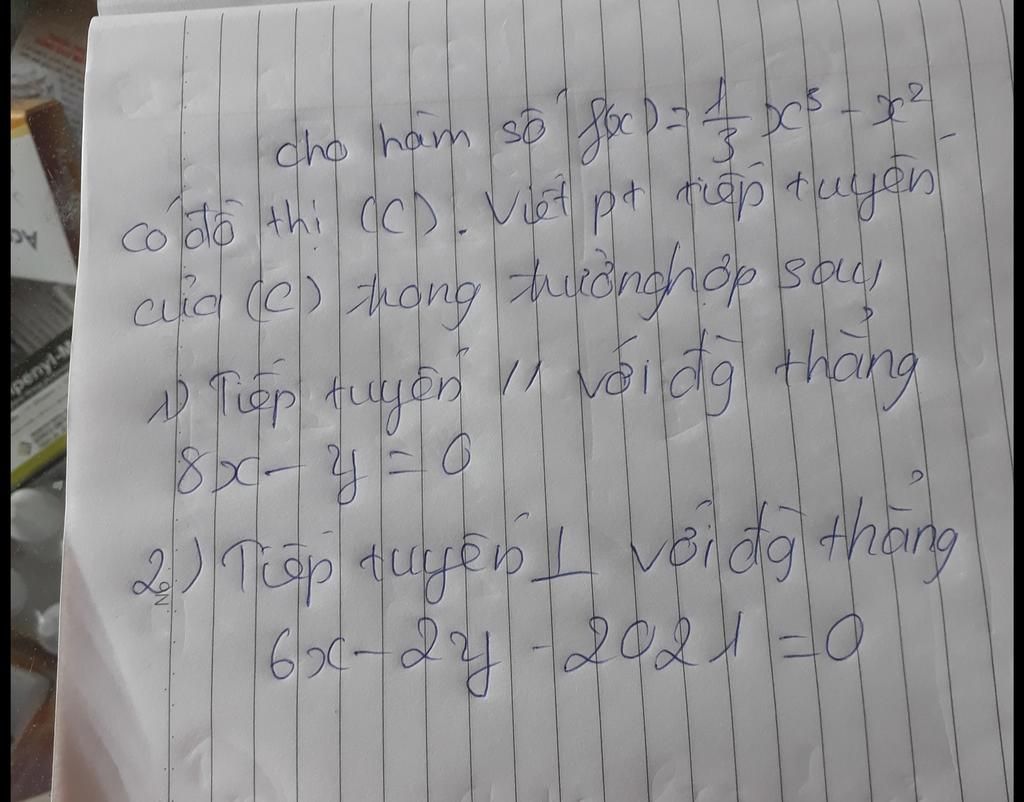 cho hàm số f(x) = 1/3 x³ - x²
có đồ thị (C). Viết pt tiếp tuyến
của (C) trong trường hợp sau
1) Tiếp tuyến // với đg thẳng
8x - y = 0
2) Tiếp tuyến ⊥ với đg thẳng
6x - 2y - 2021 = 0